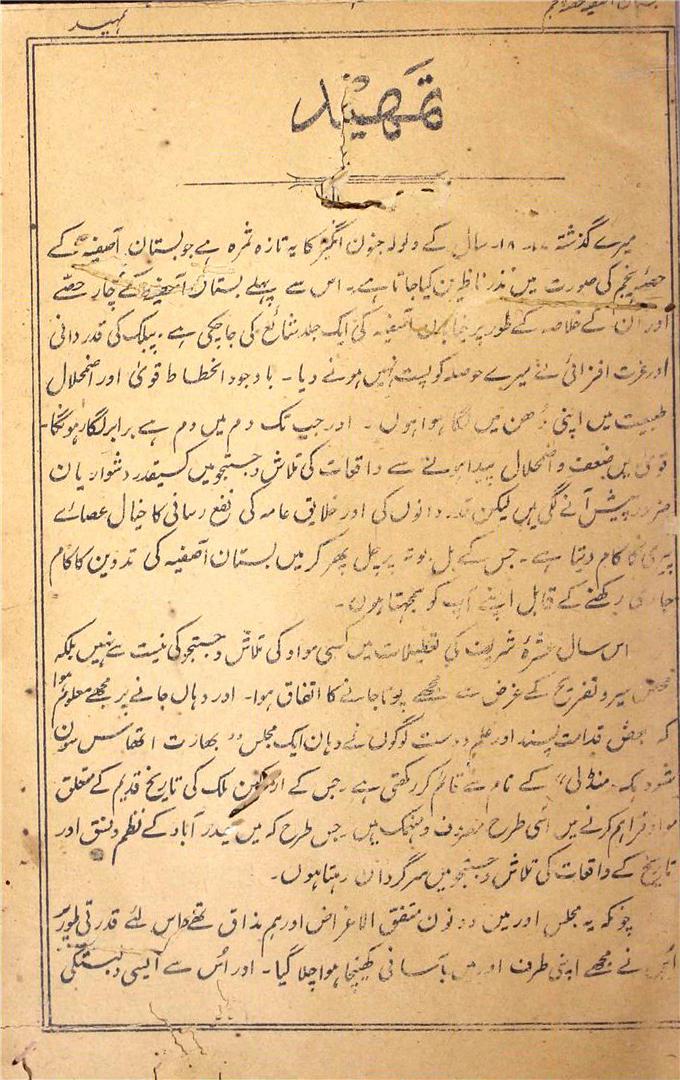 تمہید
بستان آصفیہ حصہ پنجم
تمہید
میرے گذشتہ ۔ ۱۸ سال کے ولولہ جنون انگیز کا یہ تازہ ثمرہ ہے جو بستان آصفیہ کے
حصہ پنجم کی صورت میں نذر ناظرین کیا جاتا ہے۔ اس سے پہلے بستان آصفیہ کے چار حصے
اور ان کے خلاصہ کے طور پر آصفیہ کی ایک جلد شائع کی جا چکی ہے۔ پبلک کی قدردانی
اور عزت افزائی نے میرے حوصلہ کو پست نہیں ہونے دیا۔ باوجود انحطاط قویٰ اور اضمحلال
طبیعت میں اپنی دُھن میں لگا ہوا ہوں ۔ اور جب تک دم میں دم ہے برابر لگا رہونگا۔
قویٰ میں ضعف و اضمحلال پیدا ہونے سے واقعات کی تلاش و جستجو میں کسیقدر دشواریان
ضرور پیش آنے لگی ہیں لیکن قدردانوں کی اور خلایق عامہ کی نفع رسانی کا خیال عصائے
پیری کا کام دیتا ہے۔ جس کے بل بوتہ پر چل پھر کر میں بستان آصفیہ کی تدوین کا کام
جاری رکھنے کے قابل اپنے آپ کو سمجھتا ہوں۔
اس سال عشرۂ شریف کی تعطیلات میں کسی مواد کی تلاش و جستجو کی نیت سے نہیں بلکہ
محض سیر و تفریح کے غرض سے مجھے پونا جانے کا اتفاق ہوا۔ اور وہاں جانے پر مجھے معلوم ہوا
کہ بعض قدامت پسند اور علم دوست لوگوں نے وہان ایک مجلس ’’ بھارت اتھاس سون
شودہک منڈلی ‘‘ کے نام سے قائم کر رکھی ہے۔ جس کے ارکین ملک کی تاریخ قدیم کے متعلق
مواد فراہم کرنے میں اُسی طرح مصروف و منہمک ہیں ۔ جس طرح کہ میں حیدرآباد کے نظم و نسق اور
تاریخ کے واقعات کی تلاش و جستجو میں سرگرداں رہتا ہوں۔
چونکہ یہ مجلس اور میں دونون متفق الاغراض اور ہم مذاق تھے اس لئے قدرتی طور پر
اُس نے مجھے اپنی طرف اور میں بآسانی کھنچا ہوا چلا گیا۔ اور اُس سے ایسی دلبستگی